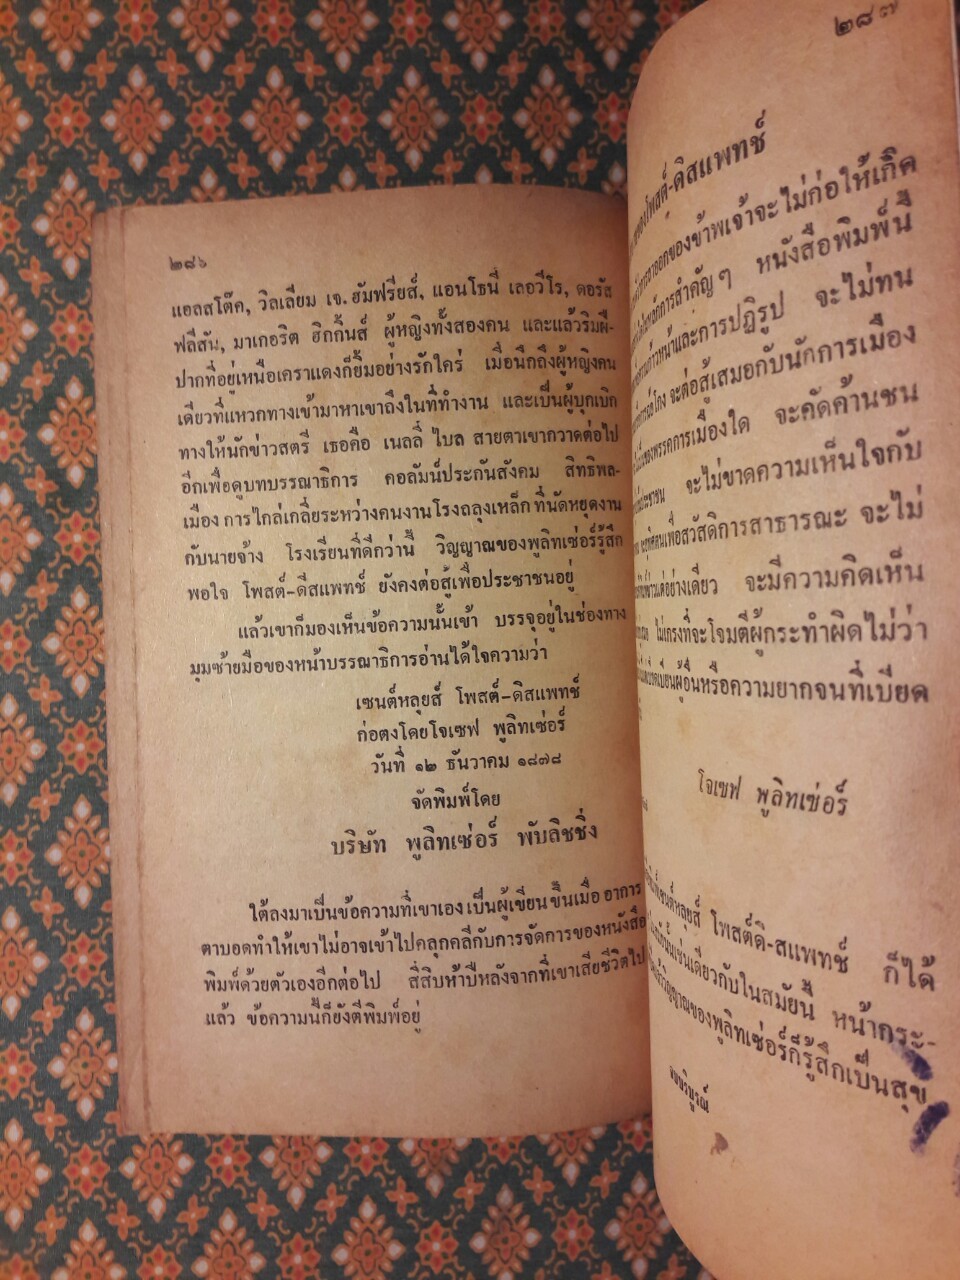 ๒๘๖
แอลสโต๊ค, วิลเลียม เจ. ฮัมฟรีย์ส์, แอนโธนี่ เลอวีโร, ดอรัส
ฟลีสัน, มาเกอริต ฮิกกิ้นส์ ผู้หญิงทั้งสองคน และแล้วริมฝี-
ปากที่อยู่เหนือเคราแดงก็ยิ้มอย่างรักใคร่ เมื่อนึกถึงผู้หญิงคน
เดียวที่แหวกทางเข้ามาหาเขาถึงในที่ทำงาน และเป็นผู้บุกเบิก
ทางให้นักข่าวสตรี เธอคือ เนลลี่ ไบล สายตาเขากวาดต่อไป
อีกเพื่อดูบทบรรณาธิการ คอลัมน์ประกันสังคม สิทธิพล-
เมือง การไกล่เกลี่ยระหว่างคนงานโรงถลุงเหล็กที่นัดหยุดงาน
กับนายจ้าง โรงเรียนที่ดีกว่านี้ วิญญาณของพูลิทเซ่อร์รู้สึก
พอใจ โพสต์-ดีสแพทช์ ยังคงต่อสู้เพื่อประชาชนอยู่
แล้วเขาก็มองเห็นข้อความนั้นเข้า บรรจุอยู่ในช่องทาง
มุมซ้ายมือของหน้าบรรณาธิการอ่านได้ใจความว่า
เซนต์หลุยส์ โพสต์-ดิสแพทช์
ก่อตงโดยโจเซฟ พูลิทเซ่อร์
วันที่ ๑๒ ธันวาคม ๑๘๗๘
จัดพิมพ์โดย
บริษัท พูลิทเซ่อร์ พับลิชชิ่ง
ใต้ลงมาเป็นข้อความที่เขาเอง เป็นผู้เขียน ขึ้นเมื่อ อาการ
ตาบอดทำให้เขาไม่อาจเข้าไปคลุกคลีกับการจัดการของหนังสือ
พิมพ์ด้วยตัวเองอีกต่อไป สี่สิบห้าปีหลังจากที่เขาเสียชีวิตไป
แล้ว ข้อความนี้ก็ยังตีพิมพ์อยู่
๒๘๗
ของโพสต์-ดิสแพทช์
การลาออกของข้าพเจ้าจะไม่ก่อให้เกิด
หลักการสำคัญ ๆ หนังสือพิมพ์นี้
ก้าวหน้าและการปฏิรูป จะไม่ทน
จะต่อสู้เสมอกับนักการเมือง
ของพรรคการเมืองใด จะคัดค้านชน
ประชาชน จะไม่ขาดความเห็นใจกับ
เพื่อสวัสดิการสาธารณะ จะไม่
ข่าวแต่อย่างเดียว จะมีความคิดเห็น
ไม่เกรงที่จะโจมตีผู้กระทำผิดไม่ว่า
เบียนผู้อื่นหรือความยากจนที่เบียด
โจเซฟ พูลิทเซ่อร์
เซนต์หลุยส์ โพสต์ดิ-สแพทช์ ก็ได้
นั้นเช่นเดียวกับในสมัยนี้ หน้ากระ-
วิญญาณของพูลิทเซ่อร์ก็รู้สึกเป็นสุข
จบบริบูรณ์